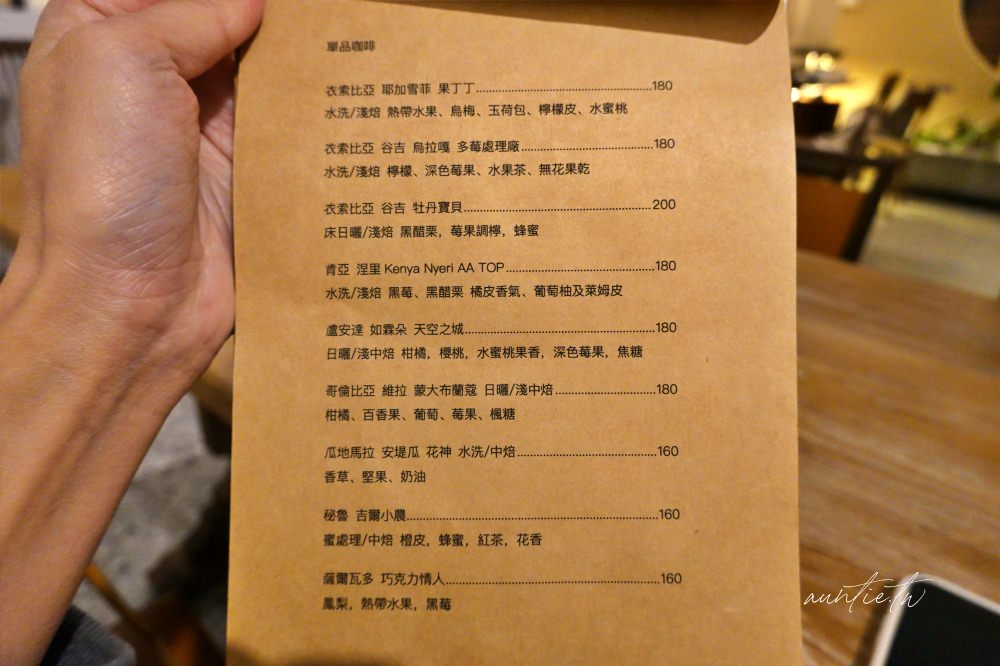 單品咖啡
衣索比亞 耶加雪菲 果丁丁.....180
水洗/淺焙 熱帶水果、烏梅、玉荷包、檸檬皮、水蜜桃
衣索比亞 谷吉 烏拉嘎 多莓處理廠.....180
水洗/淺焙 檸檬、深色莓果、水果茶、無花果乾
衣索比亞 谷吉 牡丹寶貝.....200
床日曬/淺焙 黑醋栗，莓果調檸，蜂蜜
肯亞 涅里 Kenya Nyeri AA TOP.....180
水洗/淺焙 黑莓、黑醋栗 橘皮香氣、葡萄柚及萊姆皮
盧安達 如霖朵 天空之城.....180
日曬/淺中焙 柑橘，櫻桃，水蜜桃果香，深色莓果，焦糖
哥倫比亞 維拉 蒙大布蘭蔻 日曬/淺中焙.....180
柑橘、百香果、葡萄、莓果、楓糖
瓜地馬拉 安堤瓜 花神 水洗/中焙.....160
香草、堅果、奶油
秘魯 吉爾小農.....160
蜜處理/中焙 橙皮，蜂蜜，紅茶，花香
薩爾瓦多 巧克力情人.....160
鳳梨，熱帶水果，黑莓
auntie.tw